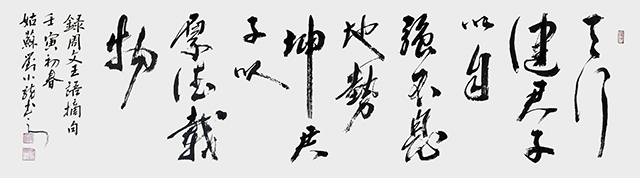 天行
健君子
以自
強不息
地勢
坤君
子以
厚德載
物
録周文王語摘句
壬寅初春
姑蘇劉小龍書